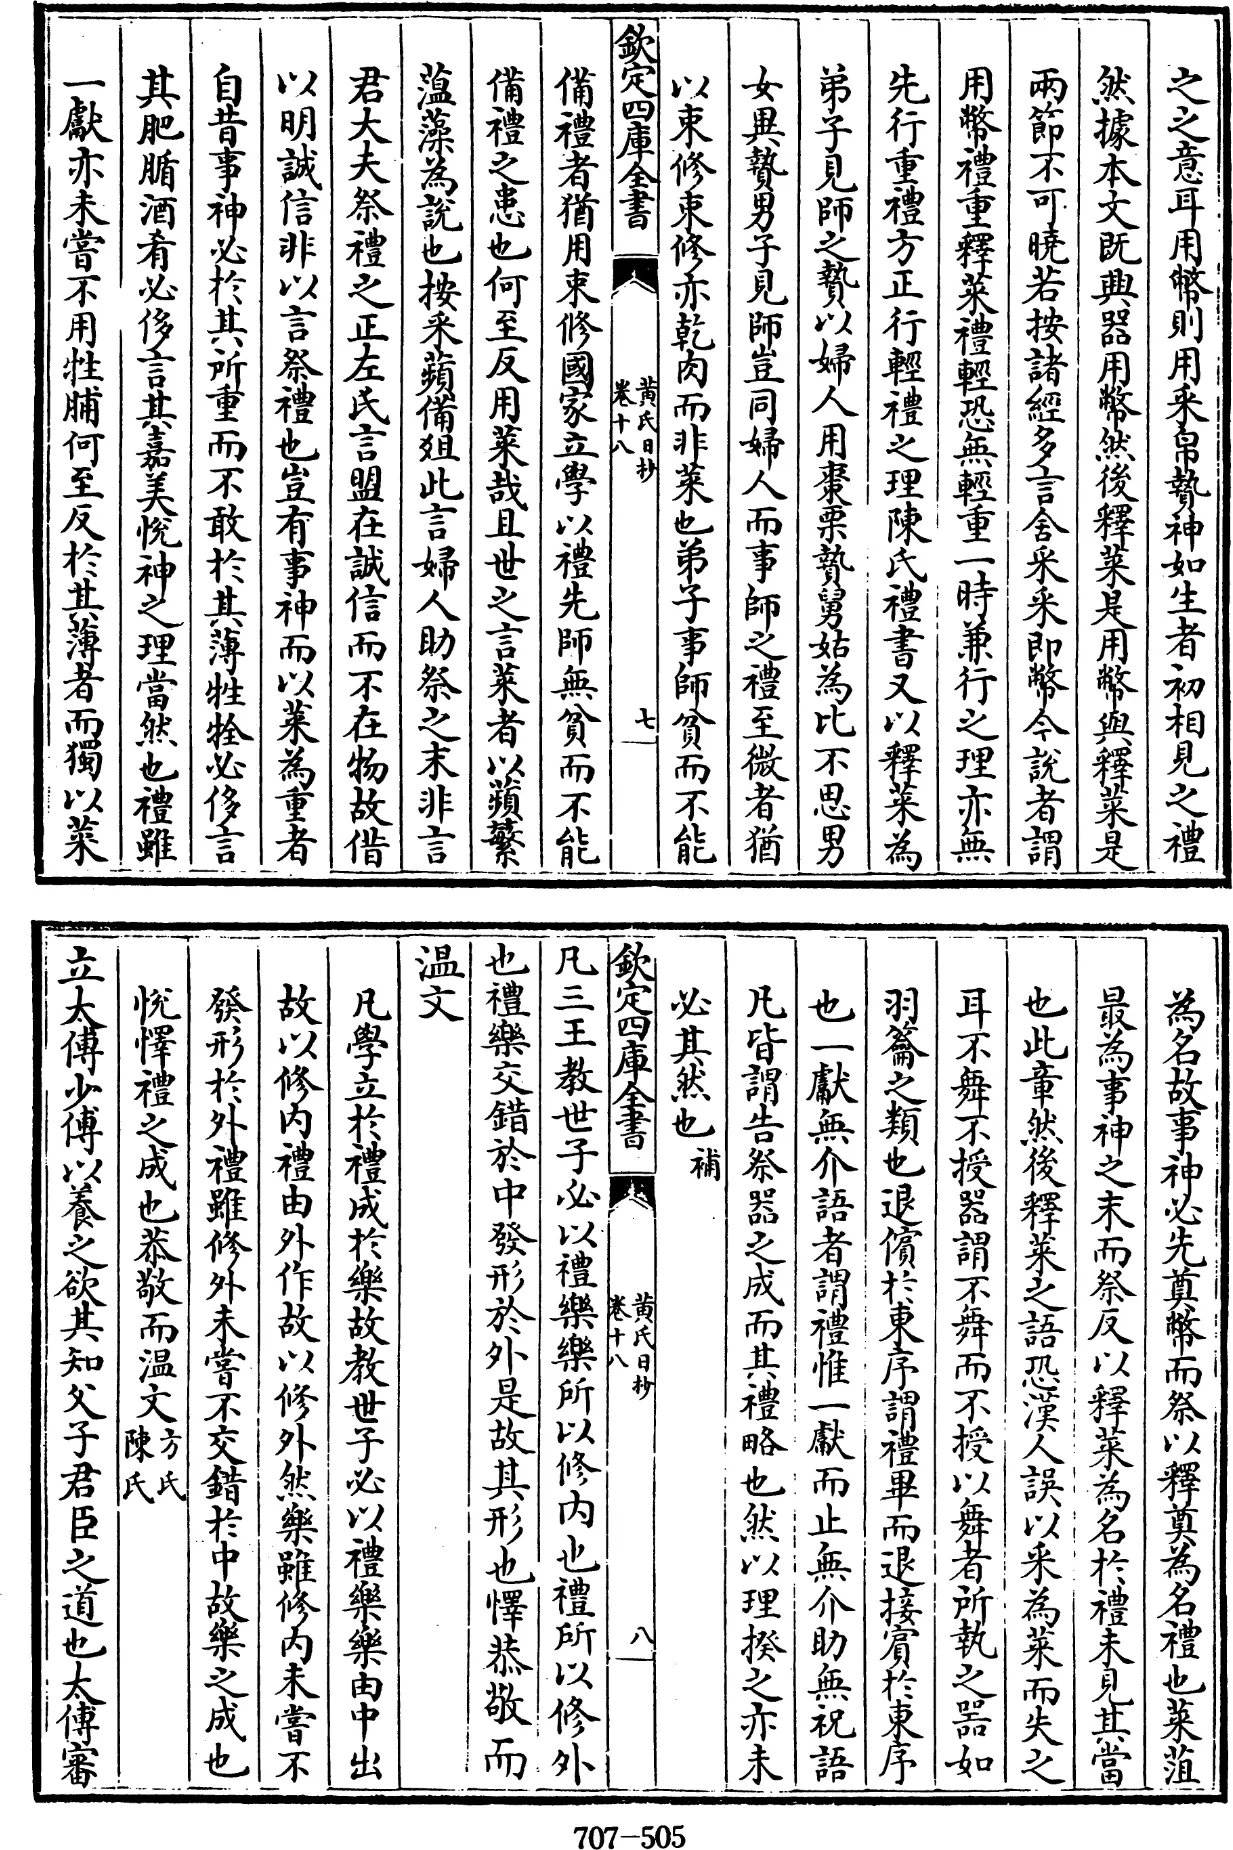 之之意耳用幣則用采帛贄神如生者初相見之禮
然據本文既興器用幣然後釋菜是用幣與釋菜是
兩節不可曉若按諸經多言舍采采即幣今說者謂
用幣禮重釋菜禮輕恐無輕重一時兼行之理亦無
先行重禮方正行輕禮之理陳氏禮書又以釋菜為
弟子見師之贄以婦人用棗栗贄舅姑為比不思男
女異贄男子見師豈同婦人而事師之禮至微者猶
以束修束修亦乾肉而非菜也弟子事師貧而不能
欽定四庫全書
黃氏日抄
卷十八
七
備禮者猶用束修國家立學以禮先師無貧而不能
備禮之患也何至反用菜哉且世之言菜者以蘋蘩
薀藻為說也按采蘋備俎此言婦人助祭之末非言
君大夫祭禮之正左氏言盟在誠信而不在物故借
以明誠信非以言祭禮也豈有事神而以菜為重者
自昔事神必於其所重而不敢於其薄牲牷必侈言
其肥腯酒肴必侈言其嘉美悅神之理當然也禮雖
一獻亦未嘗不用牲脯何至反於其薄者而獨以菜
為名故事神必先奠幣而祭以釋奠為名禮也菜菹
最為事神之末而祭反以釋菜為名於禮未見其當
也此章然後釋菜之語恐漢人誤以采為菜而失之
耳不舞不授器謂不舞而不授以舞者所執之器如
羽籥之類也退儐於東序謂禮畢而退接賓於東序
也一獻無介語者謂禮惟一獻而止無介助無祝語
凡皆謂告祭器之成而其禮略也然以理揆之亦未
必其然也補
欽定四庫全書
黃氏日抄
卷十八
八
凡三王教世子必以禮樂樂所以修內也禮所以修外
也禮樂交錯於中發形於外是故其形也懌恭敬而
温文
凡學立於禮成於樂故教世子必以禮樂樂由中出
故以修內禮由外作故以修外然樂雖修內未嘗不
發形於外禮雖修外未嘗不交錯於中故樂之成也
悅懌禮之成也恭敬而温文方氏
陳氏
立太傅少傅以養之欲其知父子君臣之道也太傅審
707-505